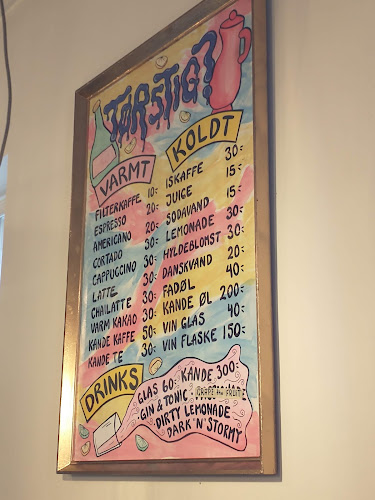 TØRSTIG?
VARMT
FILTERKAFFE 10:-
ESPRESSO 20:-
AMERICANO 20:-
CORTADO 30:-
CAPPUCCINO 30:-
LATTE 30:-
CHAILATTE 30:-
VARM KAKAO 30:-
KANDE KAFFE 50:-
KANDE TE 30:-
KOLDT
ISKAFFE 30:-
JUICE 15:-
SODAVAND 15:-
LEMONADE 30:-
HYLDEBLOMST 30:-
DANSKVAND 20:-
FADØL 40:-
KANDE ØL 200:-
VIN GLAS 40:-
VIN FLASKE 150:-
DRINKS
GLAS 60: KANDE 300:
GIN & TONIC · GRAPE FRUIT
DIRTY LEMONADE
DARK 'N' STORMY